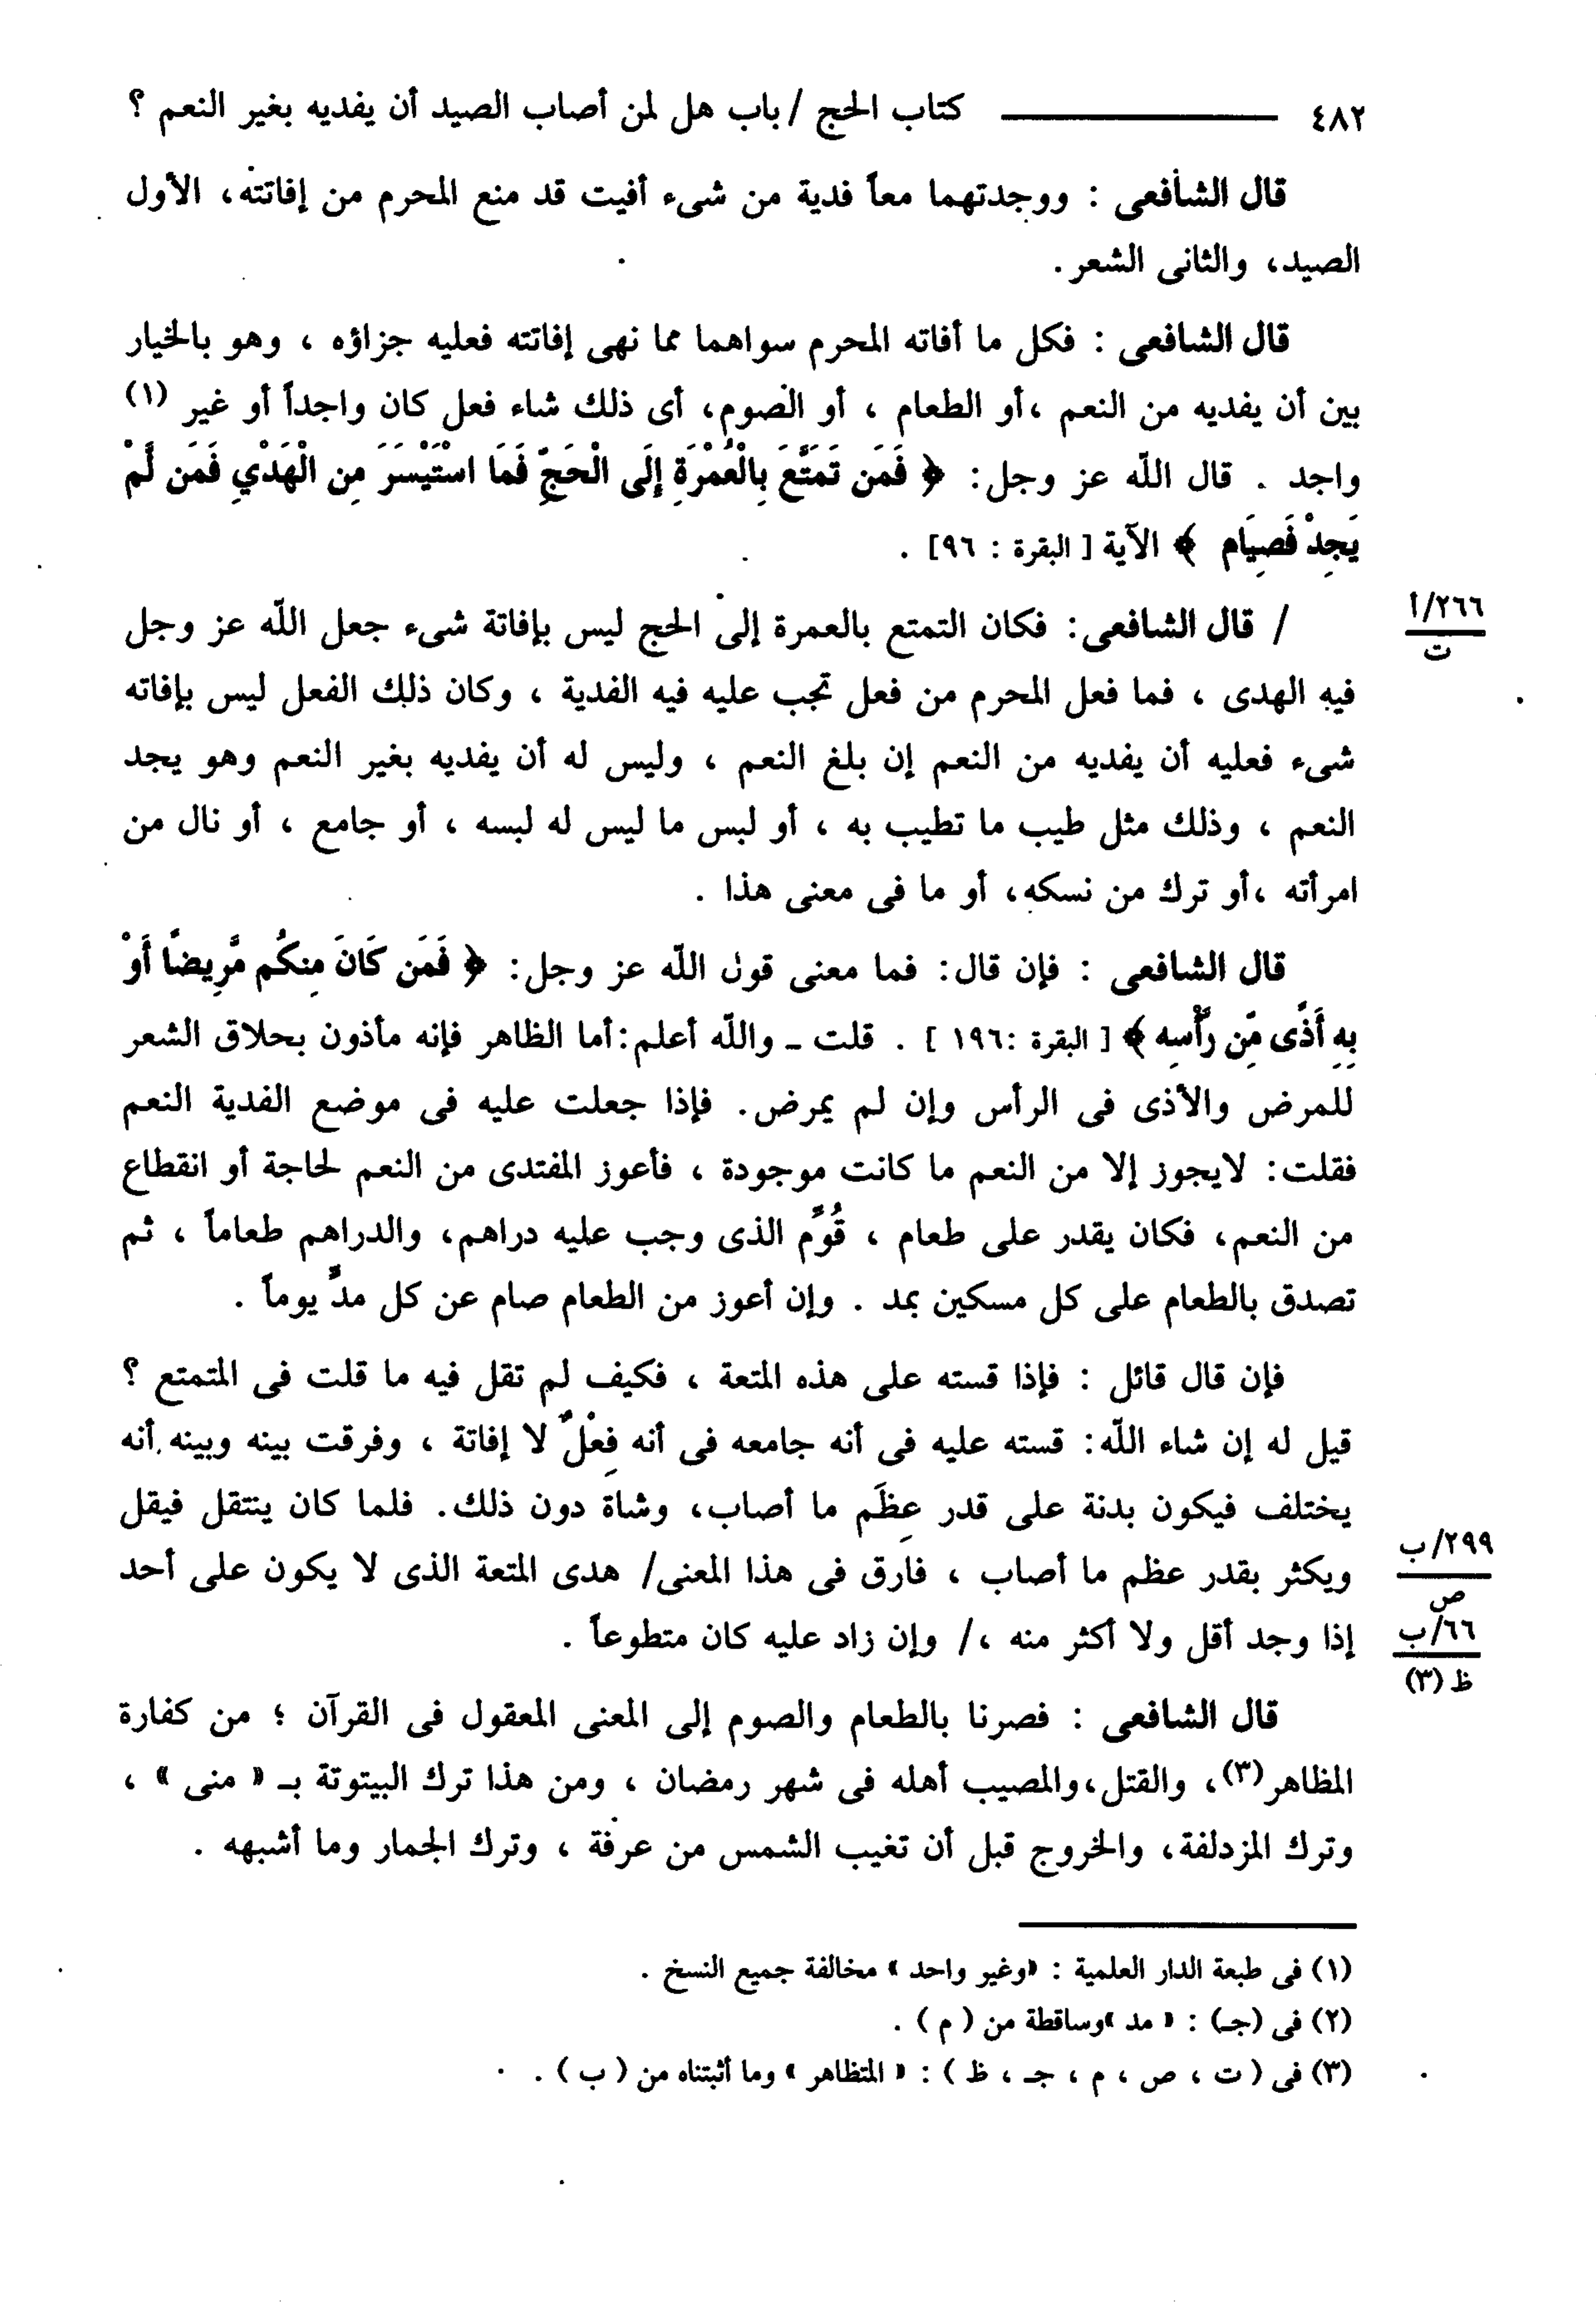 ٤٨٢ ــــــــــــ كتاب الحج / باب هل لمن أصاب الصيد أن يفديه بغير النعم ؟
قال الشافعى : ووجدتهما معاً فدية من شىء أفيت قد منع المحرم من إفاتته، الأول
الصيد، والثانى الشعر.
قال الشافعى : فكل ما أفاته المحرم سواهما مما نهى إفاتته فعليه جزاؤه ، وهو بالخيار
بين أن يفديه من النعم ،أو الطعام ، أو الصوم، أى ذلك شاء فعل كان واجداً أو غير (١)
واجد . قال اللّه عز وجل: ﴿ فَمَن تَمَتَّعَ بِالْعُمْرَةِ إِلَى الْحَجِّ فَمَا اسْتَيْسَرَ مِنَ الْهَدْيِ فَمَن لَّمْ
يَجِدْ فَصِيَام ﴾ الآية [ البقرة : ٩٦] .
/ قال الشافعى: فكان التمتع بالعمرة إلى الحج ليس بإفاتة شىء جعل اللّه عز وجل
٢٦٦/أ
ت
فيه الهدى ، فما فعل المحرم من فعل تجب عليه فيه الفدية ، وكان ذلك الفعل ليس بإفاته
شىء فعليه أن يفديه من النعم إن بلغ النعم ، وليس له أن يفديه بغير النعم وهو يجد
النعم ، وذلك مثل طيب ما تطيب به ، أو لبس ما ليس له لبسه ، أو جامع ، أو نال من
امرأته ،أو ترك من نسكه، أو ما فى معنى هذا .
قال الشافعى : فإن قال: فما معنى قول اللّه عز وجل: ﴿ فَمَن كَانَ مِنكُم مَّرِيضًا أَوْ
بِهِ أَذًى مِّن رَّأْسِهِ ﴾ [ البقرة :١٩٦ ] . قلت ـ واللّه أعلم:أما الظاهر فإنه مأذون بحلاق الشعر
للمرض والأذى فى الرأس وإن لم يمرض. فإذا جعلت عليه فى موضع الفدية النعم
فقلت: لايجوز إلا من النعم ما كانت موجودة ، فأعوز المفتدى من النعم لحاجة أو انقطاع
من النعم، فكان يقدر على طعام ، قُوِّم الذى وجب عليه دراهم، والدراهم طعاماً ، ثم
تصدق بالطعام على كل مسكين بمد . وإن أعوز من الطعام صام عن كل مدٍّ يوماً .
فإن قال قائل : فإذا قسته على هذه المتعة ، فكيف لم تقل فيه ما قلت فى المتمتع ؟
قيل له إن شاء اللّه: قسته عليه فى أنه جامعه فى أنه فِعْلٌ لا إفاتة ، وفرقت بينه وبينه أنه
يختلف فيكون بدنة على قدر عِظَم ما أصاب، وشاة دون ذلك. فلما كان ينتقل فيقل
ويكثر بقدر عظم ما أصاب ، فارق فى هذا المعنى/ هدى المتعة الذى لا يكون على أحد
٢٩٩/ب
ص
إذا وجد أقل ولا أكثر منه ،/ وإن زاد عليه كان متطوعاً .
٦٦/ب
ظ (٣)
قال الشافعى : فصرنا بالطعام والصوم إلى المعنى المعقول فى القرآن ؛ من كفارة
المظاهر(٣)، والقتل،والمصيب أهله فى شهر رمضان ، ومن هذا ترك البيتوتة بـ « منى » ،
وترك المزدلفة، والخروج قبل أن تغيب الشمس من عرفة ، وترك الجمار وما أشبهه .
(١) فى طبعة الدار العلمية : «وغير واحد » مخالفة جميع النسخ .
(٢) فى (جـ) : « مد »وساقطة من ( م ) .
(٣) فى ( ت ، ص ، م ، جـ ، ظ ) : « المتظاهر » وما أثبتناه من ( ب ) .